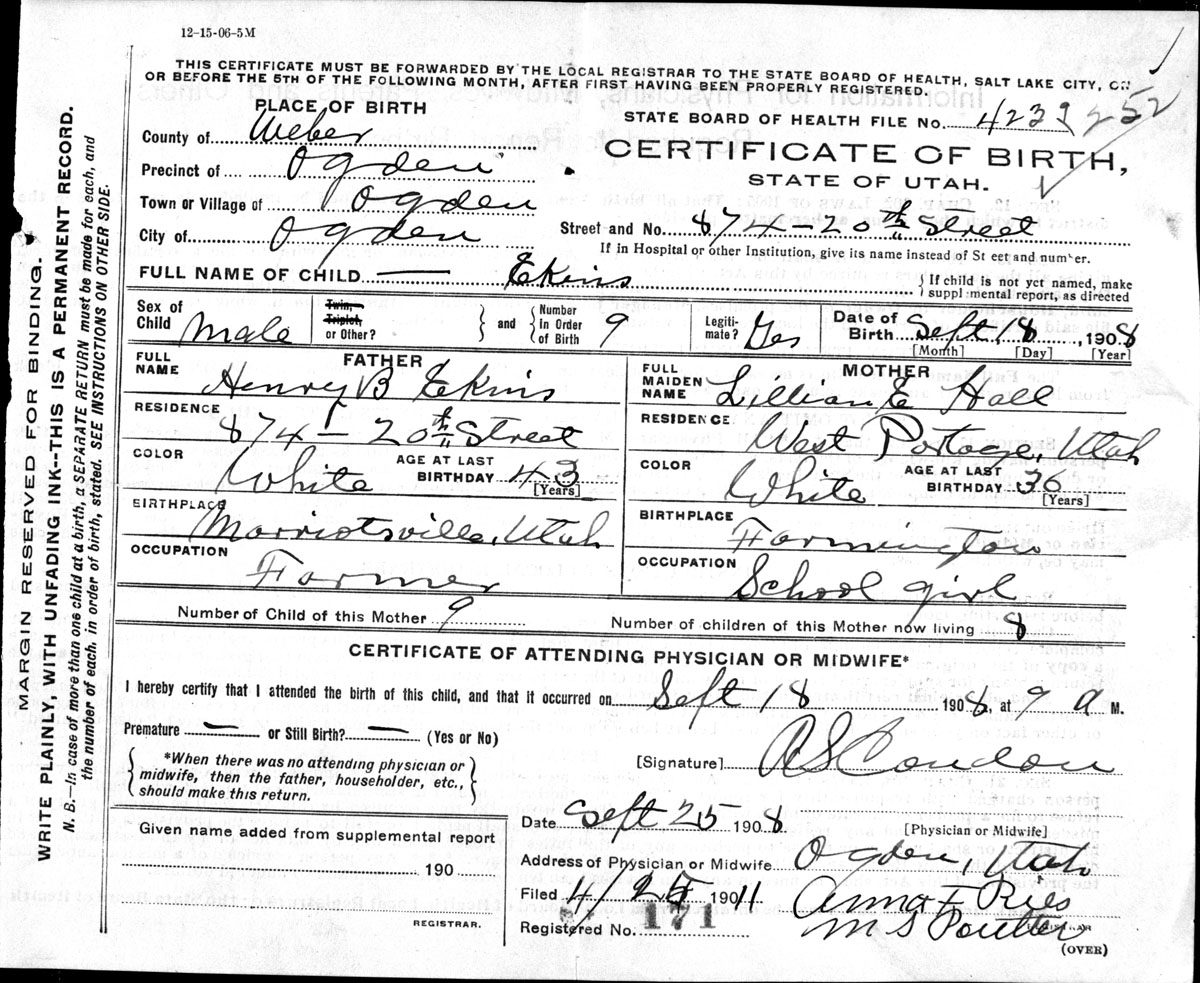 12-15-06-5M
THIS CERTIFICATE MUST BE FORWARDED BY THE LOCAL REGISTRAR TO THE STATE BOARD OF HEALTH, SALT LAKE CITY, ON
OR BEFORE THE 5TH OF THE FOLLOWING MONTH, AFTER FIRST HAVING BEEN PROPERLY REGISTERED.
PLACE OF BIRTH
County of Weber
Precinct of Ogden
Town or Village of Ogden
City of Ogden
STATE BOARD OF HEALTH FILE No. 4239 252
CERTIFICATE OF BIRTH,
STATE OF UTAH.
Street and No. 874-20th Street
If in Hospital or other Institution, give its name instead of St eet and number.
FULL NAME OF CHILD — Ekins
If child is not yet named, make
suppl mental report, as directed
Sex of Child Male
Twin, Triplet, or Other?
and Number in Order of Birth 9
Legiti-mate? Yes
Date of Birth Sept 18, 1908
[Month] [Day] [Year]
FATHER
FULL NAME Henry B Ekins
RESIDENCE 874-20th Street
COLOR White AGE AT LAST BIRTHDAY 43
[Years]
BIRTHPLACE Marriotsville, Utah
OCCUPATION Farmer
MOTHER
FULL MAIDEN NAME Lillian E Hall
RESIDENCE West Portage, Utah
COLOR White AGE AT LAST BIRTHDAY 36
[Years]
BIRTHPLACE Farmington
OCCUPATION School girl
Number of Child of this Mother 9
Number of children of this Mother now living 8
CERTIFICATE OF ATTENDING PHYSICIAN OR MIDWIFE*
I hereby certify that I attended the birth of this child, and that it occurred on Sept 18 1908, at 9 a M.
Premature — or Still Birth? — (Yes or No)
*When there was no attending physician or
midwife, then the father, householder, etc.,
should make this return.
[Signature] A S Condon
Date Sept 25 1908
[Physician or Midwife]
Given name added from supplemental report
190
REGISTRAR.
Address of Physician or Midwife Ogden, Utah
Filed 4/25 1911 Anna F Ries
Registered No. 171 M S
(OVER)
MARGIN RESERVED FOR BINDING.
WRITE PLAINLY, WITH UNFADING INK--THIS IS A PERMANENT RECORD.
N. B.—In case of more than one child at a birth, a SEPARATE RETURN must be made for each, and
the number of each, in order of birth, stated. SEE INSTRUCTIONS ON OTHER SIDE.